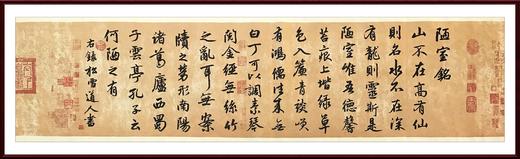 陋室銘
山不在高有仙
則名水不在深
有龍則靈斯是
陋室惟吾德馨
苔痕上堦綠草
色入簾青談笑
有鴻儒往來無
白丁可以調素琴
閱金經無絲竹
之亂耳無案
牘之勞形南陽
諸葛廬西蜀
子雲亭孔子云
何陋之有
右錄松雪道人書